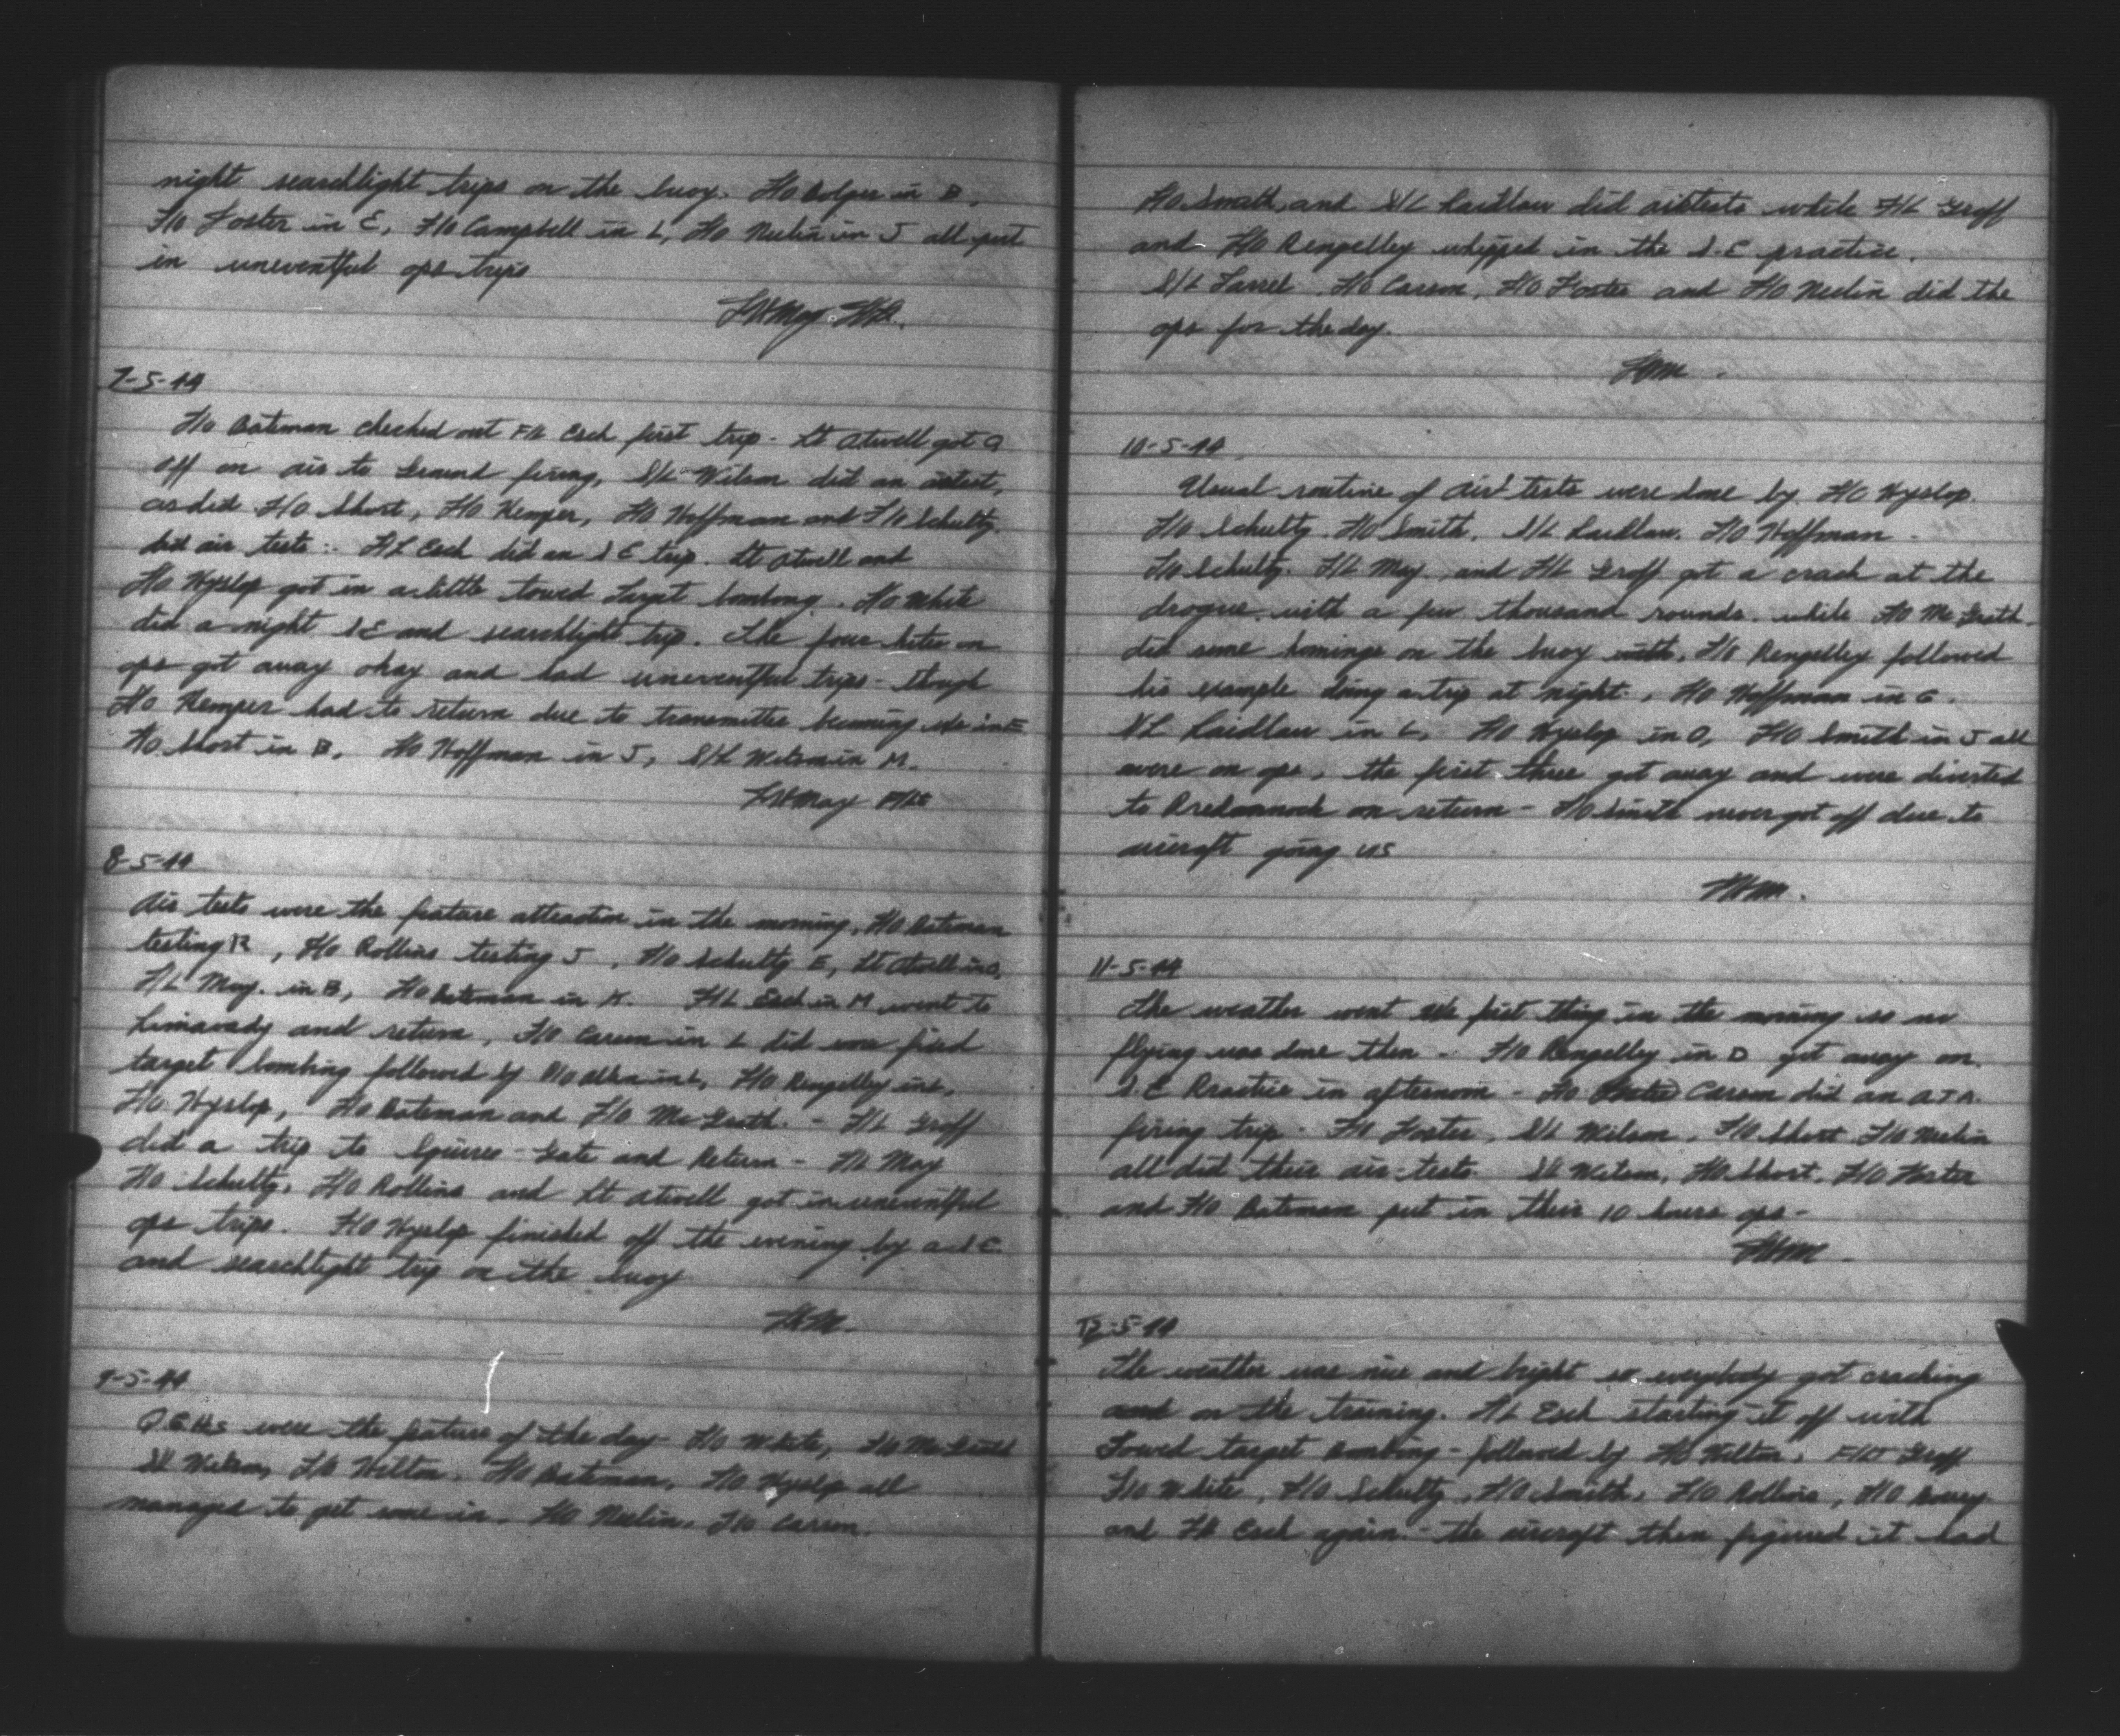 night searchlight trips on the buoy. F/O Bolger in B,
F/O Foster in E, F/O Campbell in L, F/O Neelin in J all put
in uneventful ops trips
7-5-44
F/O Bateman checked out F/L Esch first trip - Lt Atwell got a
off on air to Ground firing, S/L Wilson did an airtest,
as did F/O Short, F/O Kemper, F/O Hoffman and F/O Schultz.
did air tests. F/L Esch did an S E trip. Lt Atwell and
F/O Hyslop got in a little towed target bombing. F/O White
did a night S E and searchlight trip. The four kites on
ops got away okay and had uneventful trips - though
F/O Kemper had to return due to transmitter becoming u/s in E
F/O Short in B, F/O Hoffman in J, S/L Wilson in M.
May F/Lt
8-5-44
Air tests were the feature attraction in the morning, F/O Bateman
testing R, F/O Rollins testing J, F/O Schultz E, Lt Atwell in O,
F/L May in B, F/O Bateman in K. F/L Esch in M went to
Limavady and return, F/O Carson in L did some fixed
target bombing followed by in L, F/O Rengelley in L,
F/O Hyslop, F/O Bateman and F/O McGrath. - F/L Groff
did a trip to Squires-Gate and Return - F/L May
F/O Schultz, F/O Rollins and Lt Atwell got in uneventful
ops trips. F/O Hyslop finished off the evening by a S E
and searchlight trip on the buoy
9-5-44
were the feature of the day - F/O White, F/O McGrath
S/L Wilson, F/O Hilton, F/O Bateman, F/O Hyslop all
managed to get some in. F/O Neelin, F/O Carson.
F/O Smith, and S/L Laidlaw did airtests while F/L Groff
and F/O Rengelley whipped in the S.E practice.
S/L Farrel, F/O Carson, F/O Foster and F/O Neelin did the
ops for the day.
10-5-44
Usual routine of air tests were done by F/O Hyslop.
F/O Schultz. F/O Smith. S/L Laidlaw. F/O Hoffman
F/O Schultz. F/L May and F/L Groff got a crack at the
drogue with a few thousand rounds. while F/O McGrath
did some homings on the buoy F/O Rengelley followed
his example doing a trip at night. F/O Hoffman in G.
S/L Laidlaw in L, F/O Hyslop in O, F/O Smith in J all
were on ops, the first three got away and were diverted
to Predannack on return - F/O Smith never got off due to
aircraft going US
11-5-44
The weather went u/s first thing in the morning so no
flying was done then - F/O Rengelley in D got away on
S.E Practice in afternoon - F/O Carson did an A T A
firing trip - F/O Foster, S/L Wilson, F/O Short F/O Neelin
all did their air-tests S/L Wilson, F/O Short, F/O Foster
and F/O Bateman put in their 10 hours ops -
12-5-44
The weather was nice and bright so everybody got cracking
on the training. F/L Esch starting it off with
Towed target Bombing - followed by F/O Hilton, F/Lt Groff
F/O White, F/O Schultz, F/O Smith, F/O Rollins, F/O
and F/L Esch again - the aircraft then figured it had